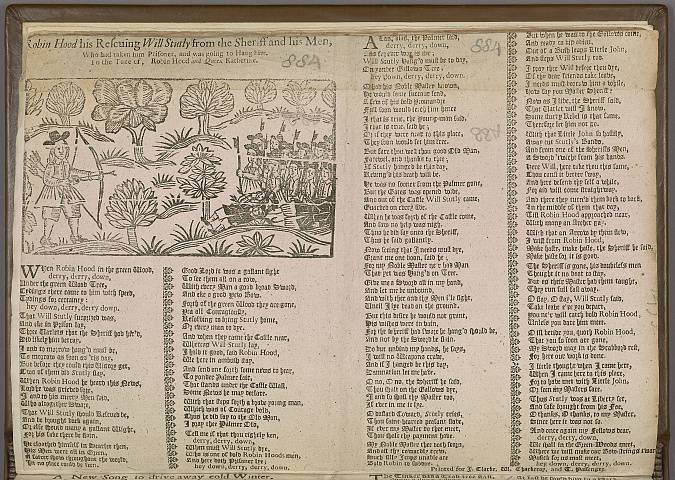 Robin Hood his Rescuing Will Stutly from the Sheriff and his Men,
Who had taken him Prisoner, and was going to Hang him.
To the Tune of, Robin Hood and Queen Katherine.
WHen Robin Hood in the green Wood,
derry, derry, down,
Under the green Wood Tree,
Tydings there came to him with speed,
Tydings for certainty:
hey down, derry, derry down.
That Will Stutly surprized was,
And eke in Prison lay,
Three Varlets that the Sheriff had
Did likely him betray.
I and to morrow hang'd must be,
To morrow as soon as 'tis day,
But before they could this Victory get,
Two of them did Stutly slay.
When Robin Hood he heard this News,
Lord he was grieved
I and to his merry Men said,
Who altogether swore,
That Will Stutly should Rescued be,
And be brought back again,
Or else should many a gallant Wight,
For his sake there be slain.
He cloathed himself in
His Men were all in Green,
A fairer show throughout the world,
In no place could be seen.
Good Lord it was a gallant sight
To see them all on a row,
With every Man a good broad Sword,
And eke a good yew Bow.
Forth of the green Wood they are gone,
Yea all Couragiously,
Resolving to bring Stutly home,
Or every man to dye.
And when they came the Castle near,
Whereas Will Stutly lay,
I hold it good, said Robin Hood,
We here in ambush stay.
And send one forth some news to hear,
To yonder Palmer fair,
That stands under the Castle Wall,
Some News he may declare.
With that steps forth a brave young man,
Which was of Courage bold,
Thus he did say to the Old Man,
I pray thee Palmer Old,
Tell me if that thou rightly ken,
derry, derry, down,
When must Will Stutly dye,
Who is one of bold Robin's men,
And here doth Prisoner lye;
hey down, derry, derry, down.
ALas, alas, the Palmer said,
derry, derry, down,
And for ever wo is me;
Will Stutly hang'd must be to day,
On yonder Gallows Tree;
hey down, derry, derry, down.
O had his Noble Master known,
He would some succour send,
A few of his bold Yeomandry
Full soon would fetch him hence
I that is true, the young-man said,
I that is true, said he;
Or if they were near to this place,
They soon would set him free.
But fare thou well thou good Old Man,
Farewel, and thanks to thee;
If Stutly hanged be this day,
Reveng'd his death will be.
He was no sooner from the Palmer gone,
But the Gates was opened wide,
And out of the Castle Will Stutly came,
Guarded on every side.
When he was forth of the Castle come,
And saw no help was nigh,
Thus he did say unto the Sheriff,
Thus he said gallantly.
Now seeing that I needs must dye,
Grant me one boon, said he;
For my Noble Master ne'r had Man
That yet was hang'd on Tree.
Give me a Sword all in my hand,
And let me be unbound,
And with thee and thy Men I'le fight,
Until I lye dead on the ground.
But this desire he would not grant,
His wishes were in vain,
For the Sheriff had sworn he hang'd should be,
And not by the Sword be slain.
Do but unbind my hands, he says,
I will no Weapons crave,
And if I hanged be this day,
Damnation let me have.
O no, O no, the Sheriff he said,
Thou shalt on the Gallows dye,
I and so shall thy Master too,
If ever in me it lye.
O dastard Coward, Stutly cries,
Thou faint-hearted peasant slave,
If ever my Master do thee meet,
Thou shalt thy payment have.
My Noble Master thee doth scorn,
And all thy cowardly crew,
Such silly Imps unable are
Bold Robin to subdue.
But when he was to the Gallows come,
And ready to bid adieu,
Out of a Bush leaps Little John,
And steps Will Stutly too.
I pray thee Will before thou dye,
Of thy dear friends take leave,
I needs must borrow him a while,
How say you Master Sheriff?
Now as I live, the Sheriff said,
That Varlet will I know,
Some sturdy Rebel is that same,
Therefore let him not go.
With that Little John so hastily,
Away cut Stutly's Bands,
And from one of the Sheriff's Men,
A Sword twicht from his hands.
Here Will, here take thou this same,
Thou canst it better sway,
And here defend thy self a while,
For aid will come straightway.
And there they turn'd them back to back,
In the middle of them that day,
Till Robin Hood approached near,
With many an Archer gay.
With that an Arrow by them flew,
I wist from Robin Hood,
Make haste, make haste, the Sheriff he said,
Make haste for it is good.
The Sheriff is gone, his doubtless men
Thought it no boot to stay,
But as their Master had them taught,
They run full fast away.
O stay, O stay, Will Stutly said,
Take leave e're you depart,
You ne'r will catch bold Robin Hood,
Unless you dare him meet.
O ill betide you, quoth Robin Hood,
That you so soon are gone,
My Sword may in the Scabbord rest,
For here our work is done.
I little thought when I came here,
When I came here to this place,
For to have met with Little John,
Or seen my Masters face.
Thus Stutly was at Liberty set,
And safe brought from his Foe,
O thanks, O thanks, to my Master,
Since here it was not so.
And once again my Fellows dear,
derry, derry, down,
We shall in the Green-Woods meet,
Where we will make our Bow-strings twang
Musick for us most sweet.
hey down, derry, derry, down.
Printed for J. Clarke, W. Thackeray, and T. Passinger.
A New Song to drive away cold Winter,